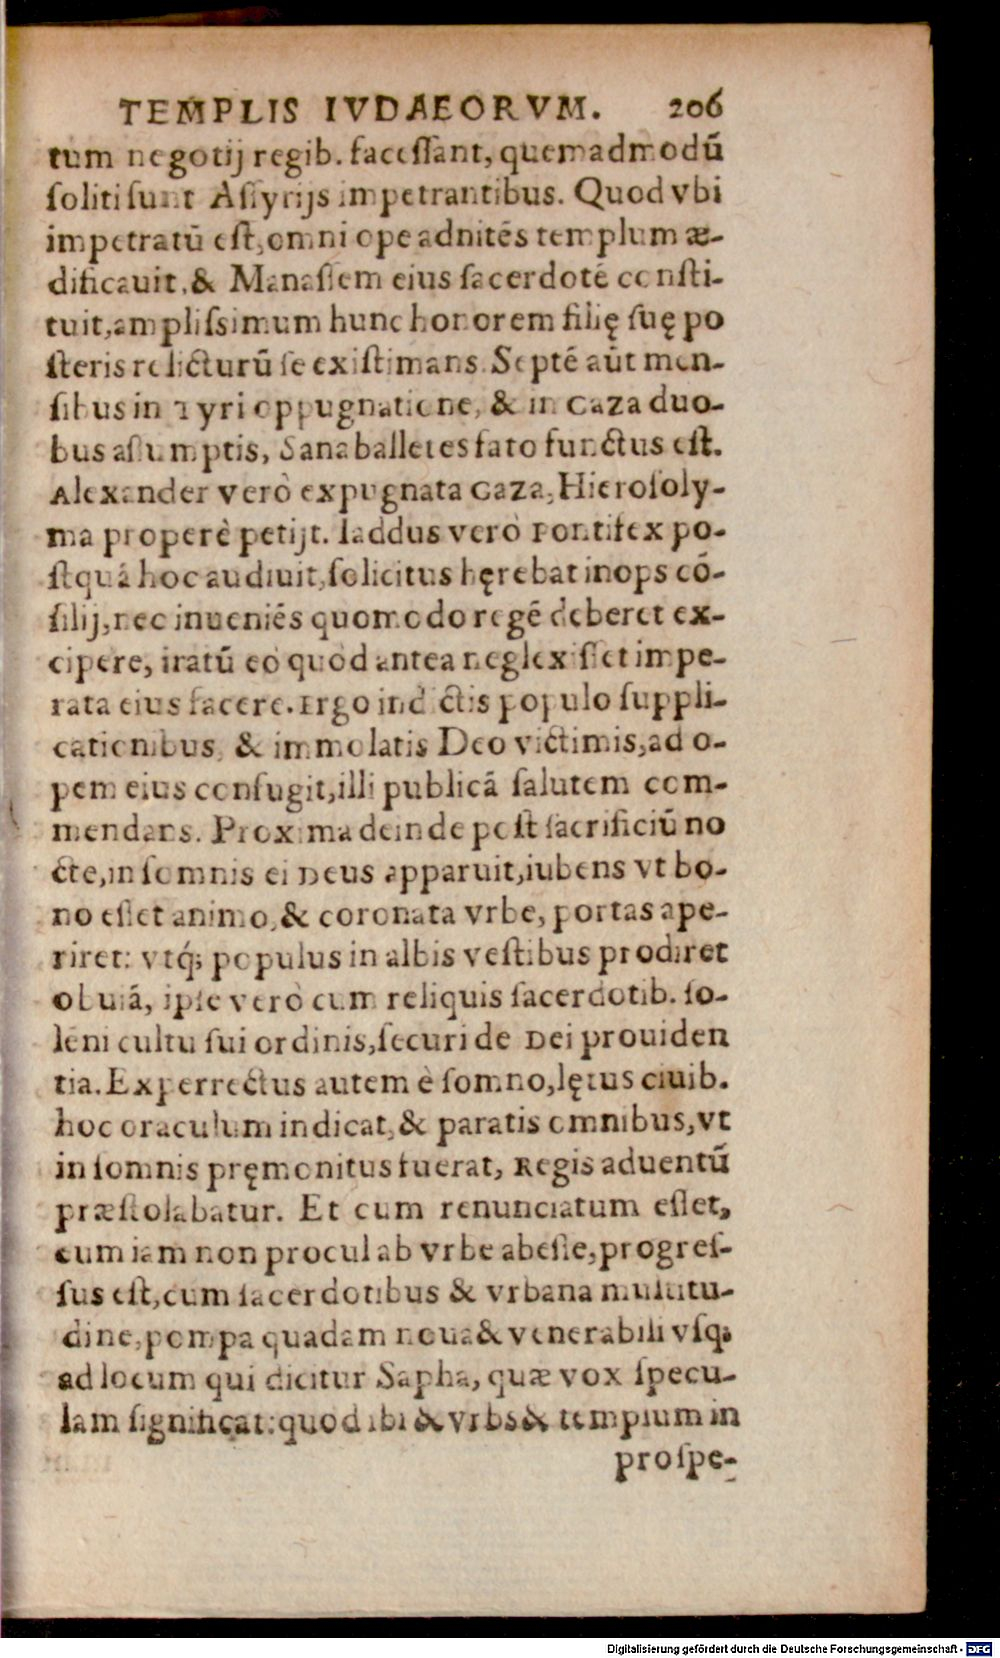 TEMPLIS IVDAEORVM. 206
tum negotij regib. facessant, quemadmodū
soliti sunt Assyrijs impetrantibus. Quod vbi
impetratū est, omni ope adnitēs templum æ-
dificauit, & Manassem eius sacerdotē consti-
tuit, amplissimum hunc honorem filię suę po
steris relicturū se existimans. Septē aūt men-
sibus in Tyri oppugnatione, & in Gaza duo-
bus assumptis, Sanaballetes fato functus est.
Alexander verò expugnata Gaza, Hierosoly-
ma properè petijt. Iaddus verò Pontifex po-
stquā hoc audiuit, solicitus hęrebat inops cō-
silij, nec inueniēs quomodo regē deberet ex-
cipere, iratū eò quòd antea neglexisset impe-
rata eius facere. Ergo indictis populo suppli-
cationibus, & immolatis Deo victimis, ad o-
pem eius confugit, illi publicā salutem com-
mendans. Proxima deinde post sacrificiū no
cte, in somnis ei Deus apparuit, iubens vt bo-
no esset animo, & coronata vrbe, portas ape-
riret: vtq́; populus in albis vestibus prodiret
obuiā, ipse verò cum reliquis sacerdotib. so-
lēni cultu sui ordinis, securi de Dei prouiden
tia. Experrectus autem è somno, lętus ciuib.
hoc oraculum indicat, & paratis omnibus, vt
in somnis pręmonitus fuerat, Regis aduentū
præstolabatur. Et cum renunciatum esset,
eum iam non procul ab vrbe abesse, progres-
sus est, cum sacerdotibus & vrbana multitu-
dine, pompa quadam noua & venerabili vsq;
ad locum qui dicitur Sapha, quæ vox specu-
lam significat: quod ibi & vrbs & templum in
prospe-
Digitalisierung gefördert durch die Deutsche Forschungsgemeinschaft - DFG